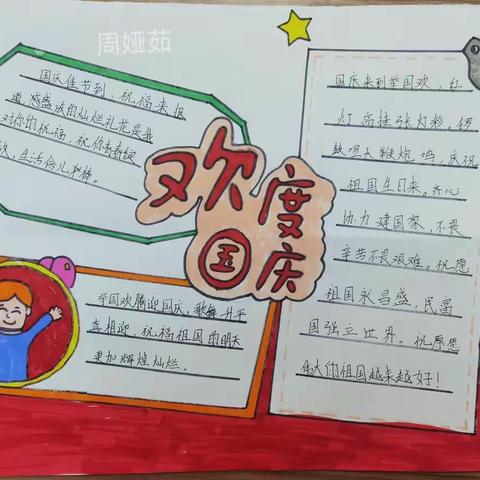 周娅茹
国庆佳节到，祝福来报
道，感盛放的灿烂礼花是我
对你的祝福，祝你青春绽
放，生活倍儿棒。
欢度
国庆
举国欢腾迎国庆，歌舞升平
喜相迎，祝福祖国的明天
更加辉煌灿烂。
国庆来到举国欢，红
灯高挂张灯彩，锣
鼓喧天鞭炮鸣，庆祝
祖国生日来。齐心
协力建国家，不畏
辛苦不畏艰难。祝愿
祖国永昌盛，民富
国强立世界。祝愿愿
伟大的祖国越来越好！